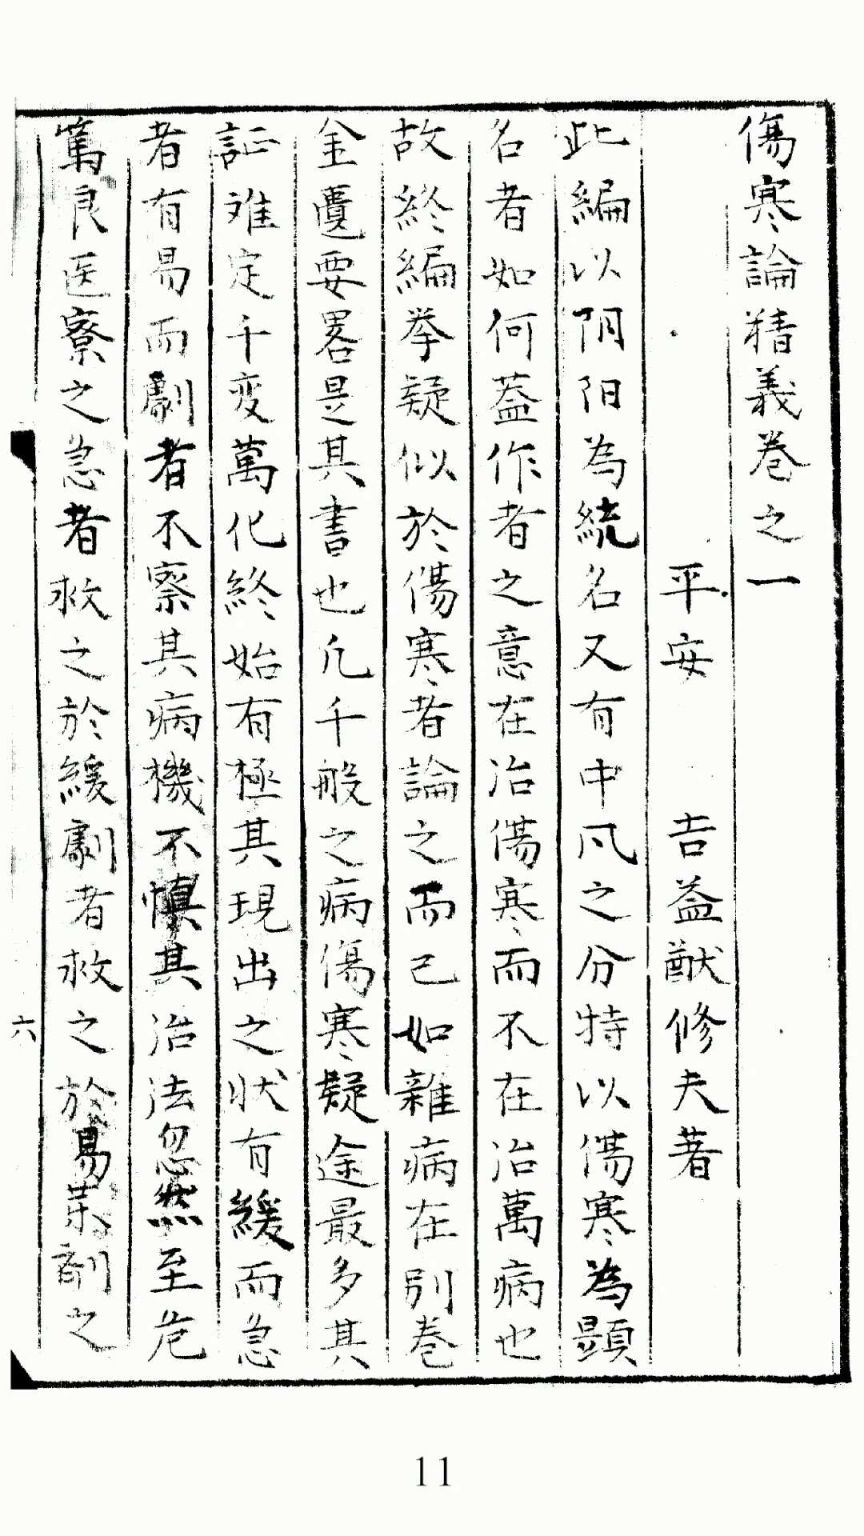 傷寒論精義卷之一
平安 吉益猷修夫著
此編以阴阳為統名又有中风之分特以傷寒為顕
名者如何蓋作者之意在治傷寒而不在治萬病也
故終編挙疑似於傷寒者論之而已如雜病在别卷
金匱要畧是其書也凢千般之病傷寒疑途最多其
証难定千变萬化終始有極其現出之状有緩而急
者有易而劇者不察其病機不慎其治法忽然至危
篤良医察之急者救之於緩劇者救之於易薬剤之
六
11